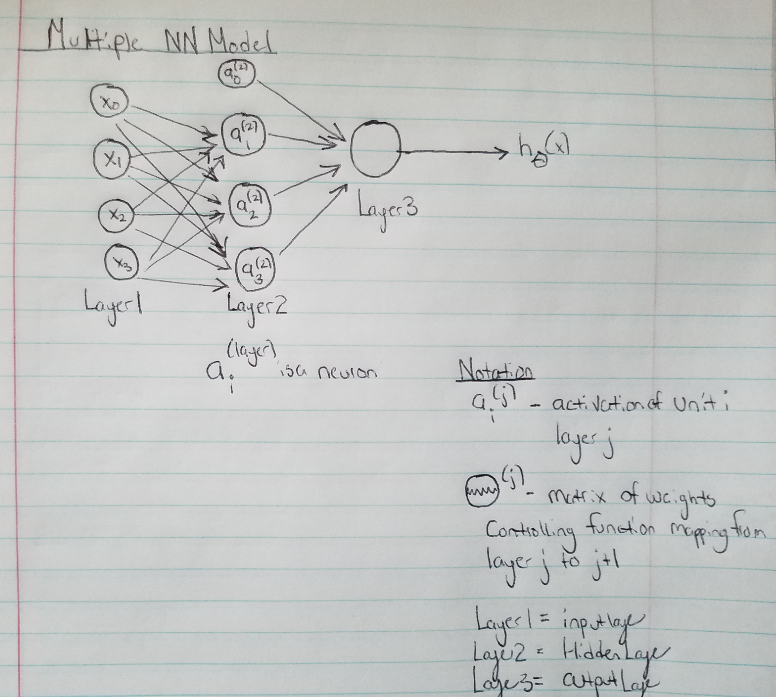 Multiple NN Model
a₀⁽²⁾
x₀
a₁⁽²⁾
x₁
hθ(x)
a₂⁽²⁾
x₂
Layer3
x₃
a₃⁽²⁾
Layer1
Layer2
aᵢ⁽ˡᵃʸᵉʳ⁾ is a neuron
Notation
aᵢ⁽ʲ⁾ - activation of unit i
layer j
Θ⁽ʲ⁾ - matrix of weights
Controlling function mapping from
layer j to j+1
Layer1 = input laye
Laye2 = Hidden Laye
Laye3 = output Laye